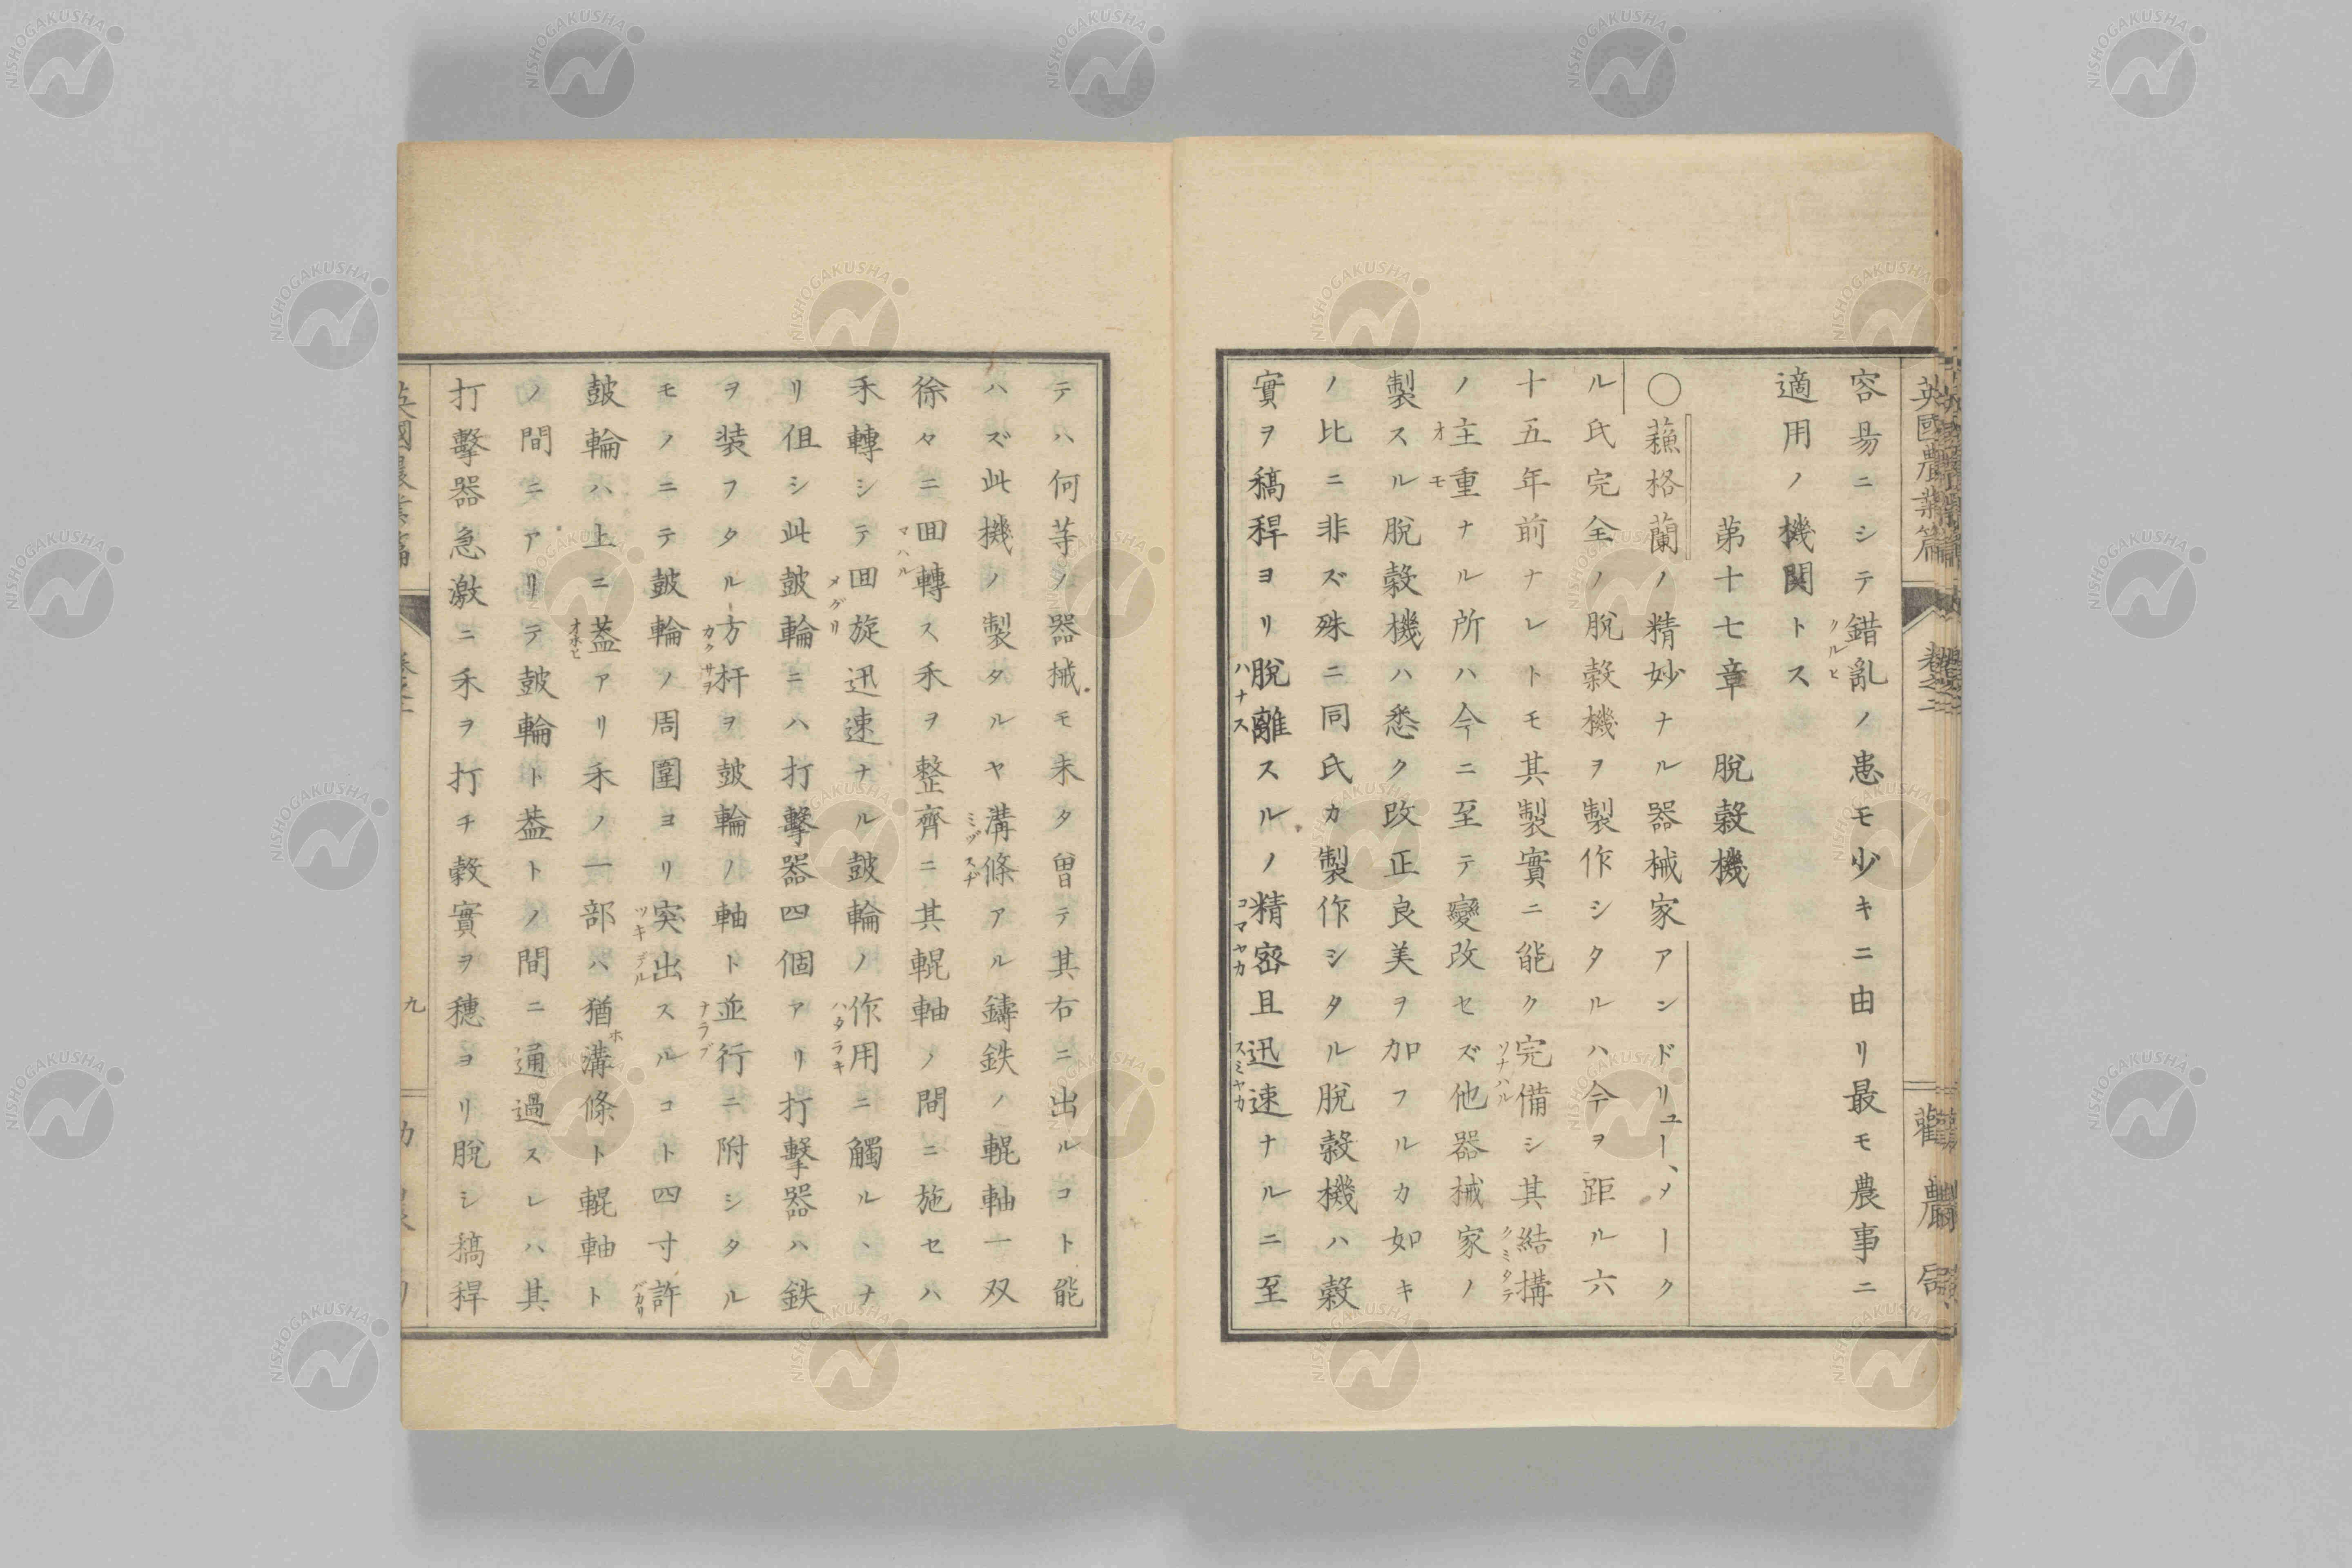 容昜ニシテ錯亂ノ患モ少キニ由リ最モ農事ニ
適用ノ機関トス
第十七章 脫穀機
○蘓格蘭ノ精妙ナル器械家アンドリユー、メーク
ル氏完全ノ脫穀機ヲ製作シタルハ今ヲ距ル六
十五年前ナレトモ其製實ニ能ク完備シ其結搆
ノ主重ナル所ハ今ニ至テ變改セズ他器械家ノ
製スル脫穀機ハ悉ク改正良美ヲ加フルカ如キ
ノ比ニ非ズ殊ニ同氏カ製作シタル脫穀機ハ穀
實ヲ稿稈ヨリ脫離スルノ精密且迅速ナルニ至
テハ何䓁ノ器械モ未タ曽テ其右ニ出ルコト能
ハズ此機ノ製タルヤ溝條アル鑄鉄ノ輥軸一双
徐々ニ囬轉ス禾ヲ整齊ニ其輥軸ノ間ニ施セハ
禾轉シテ囬旋迅速ナル皷輪ノ作用ニ觸ルヽナ
リ伹シ此皷輪ニハ打擊器四個アリ打擊器ハ鉄
ヲ装フタル方杆ヲ皷輪ノ軸ト並行ニ附シタル
モノニテ皷輪ノ周圍ヨリ突出スルコト四寸許
皷輪ハ上ニ蓋アリ禾ノ一部ハ猶溝條ト輥軸ト
ノ間ニアリテ皷輪ト蓋トノ間ニ通過スレハ其
打擊器急激ニ禾ヲ打チ穀實ヲ穗ヨリ脫シ稿稈
英國農業篇
卷之二
勸農局
九
クルヒ
オモ
ソナハル
クミタテ
ハナス
コマヤカ
スミヤカ
ミヅスヂ
マハル
メグリ
ハタラキ
カクサヲ
ナラブ
ツキデル
バカリ
オホヒ
ホ
NISHOGAKUSHA